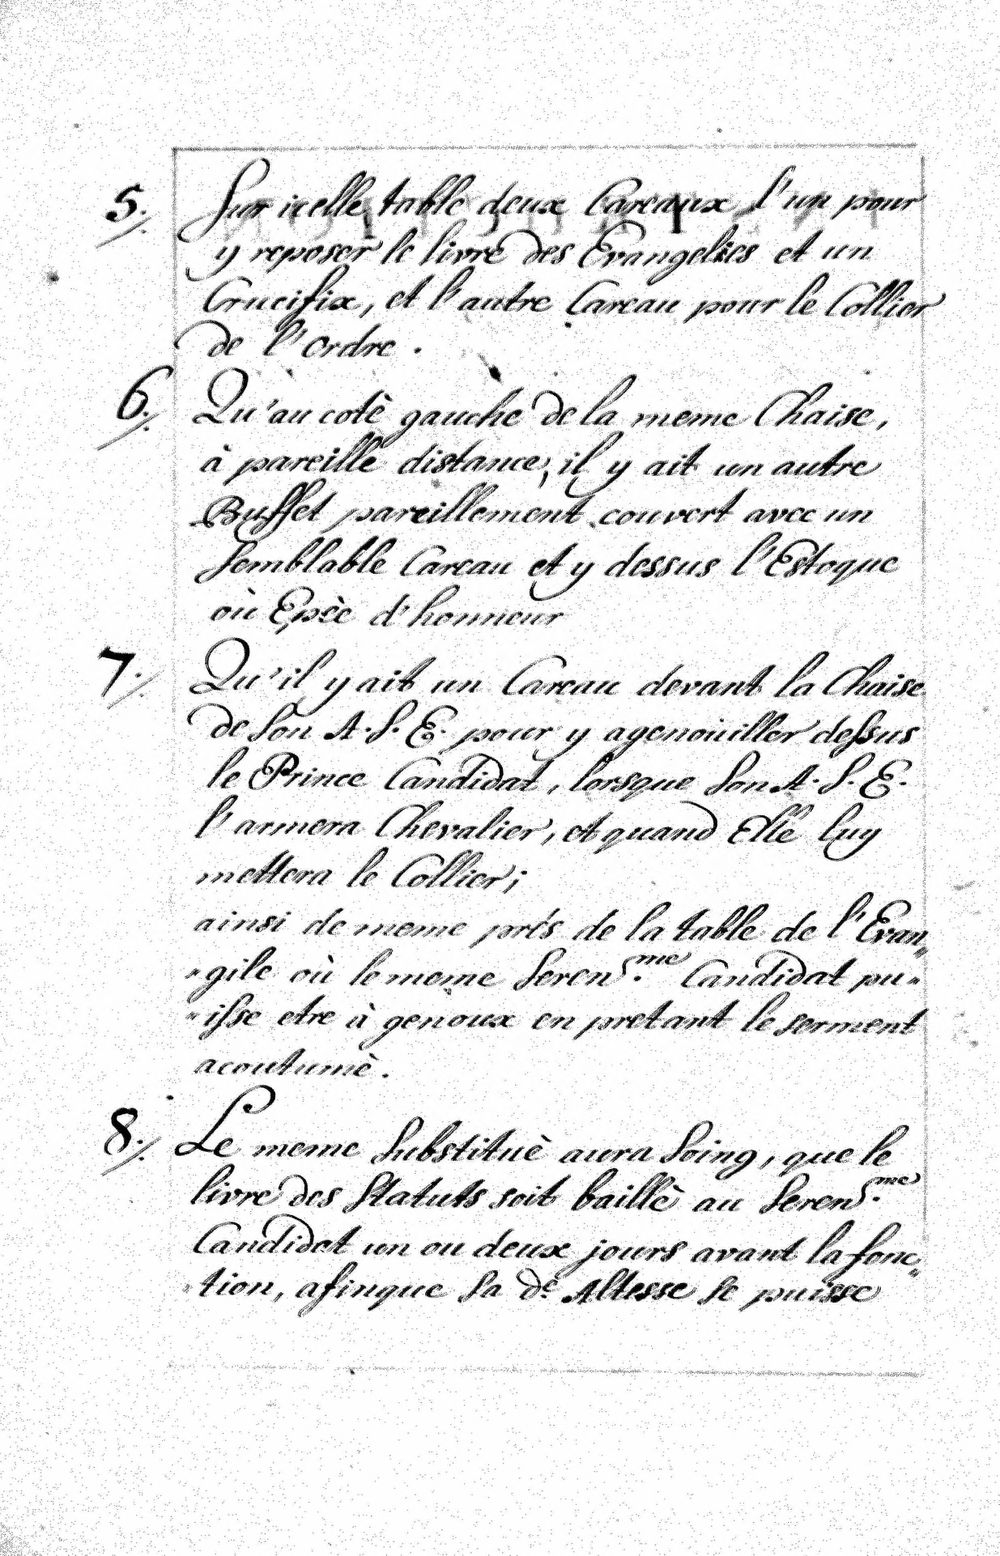 5. Sur icelle table deux Careaux l'un pour
y reposer le livre des Evangelies et un
Crucifix, et l'autre Careau pour le Collier
de l'Ordre.
6. Qu'au cotè gauche de la meme Chaise,
à pareille distance, il y ait un autre
Buffet pareillement couvert avec un
semblable Careau et y dessus l'Estoque
où Epèe d'honneur
7. Qu'il y ait un Careau devant la Chaise
de Son A. S. E. pour y agenoüiller dessus
le Prince Candidat, lorsque Son A. S. E.
l'armera Chevalier, et quand Elle luy
mettera le Collier;
ainsi de meme prés de la table de l'Evan„
„gile où le meme Seren.me Candidat pu„
„isse etre à genoux en pretant le serment
acoutumè.
8. Le meme Substituè aura Soing, que le
livre des Statuts soit baillè au Seren.me
Candidat un ou deux jours avant la fonc„
„tion, afinque Sa de Altesse se puisse